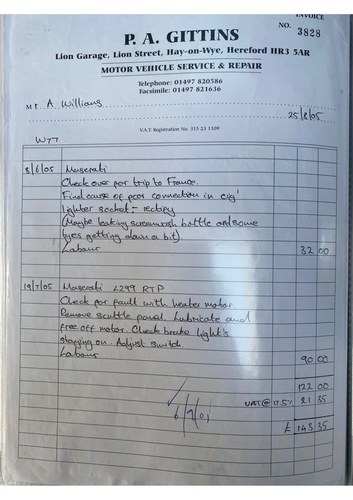 INVOICE
NO. 3828
P. A. GITTINS
Lion Garage, Lion Street, Hay-on-Wye, Hereford HR3 5AR
MOTOR VEHICLE SERVICE & REPAIR
Telephone: 01497 820586
Facsimile: 01497 821636
Mr. A. Williams
25/8/05
V.A.T. Registration No. 315 23 1109
8/6/05 Maserati
Check over for trip to France.
Find cause of poor connection in cig'
lighter socket - rectify
(Maybe leaking screenwash bottle and some
tyres getting down a bit).
Labour 32 00
19/7/05 Maserati L299 RTP
Check for fault with heater motor
Remove scuttle panel. Lubricate and
free off motor. Check brake light's
staying on. Adjust switch.
Labour 90 00
122 00
VAT@17.5% 21 35
£ 143 35